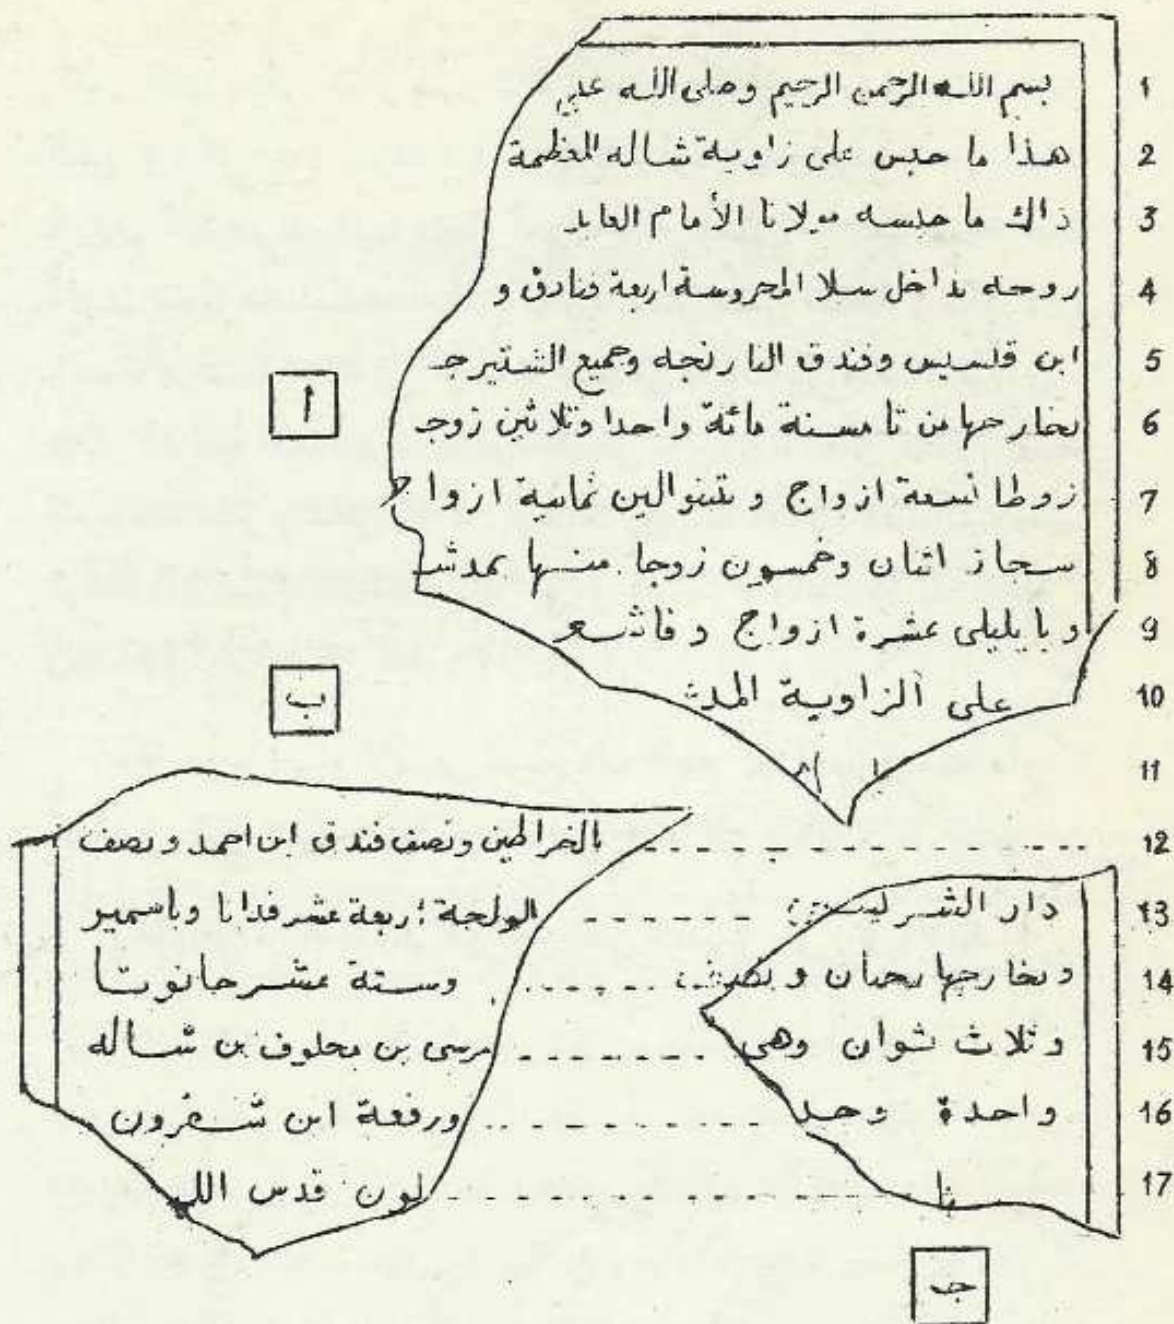 بسم الله الرحمن الرحيم وصلى الله علي 1
هذا ما حبس على زاوية شاله المعظمة 2
ذاك ما حبسه مولانا الأمام العابد 3
روحه بداخل سلا المحروسة اربعة فنادق و 4
ابن قلسيس وفندق النارنجه وجميع الشتيرجـ 5
أ
بخارجها من تامسنة مائة واحدا وثلاثين زوجـ 6
زوطا تسعة ازواج و بتينوالين ثمانية ازواج 7
سجاز اثنان وخمسون زوجا منها بمدشـ 8
و بايليلى عشرة ازواج و فاتسعـ 9
ب
على الزاوية المذ 10
11
بالخراطين ونصف فندق ابن احمد ونصف 12
دار الشر ... الولجة اربعة عشر فدانا وباسمير 13
وبخارجها رحيان و نصف ... وستة عشر حانوتا 14
وثلاث شوان وهي ... مرسى بن مخلوف بن شاله 15
واحدة وحد ... ورفعة ابن شقرون 16
ثا ... لون قدس الله 17
جـ